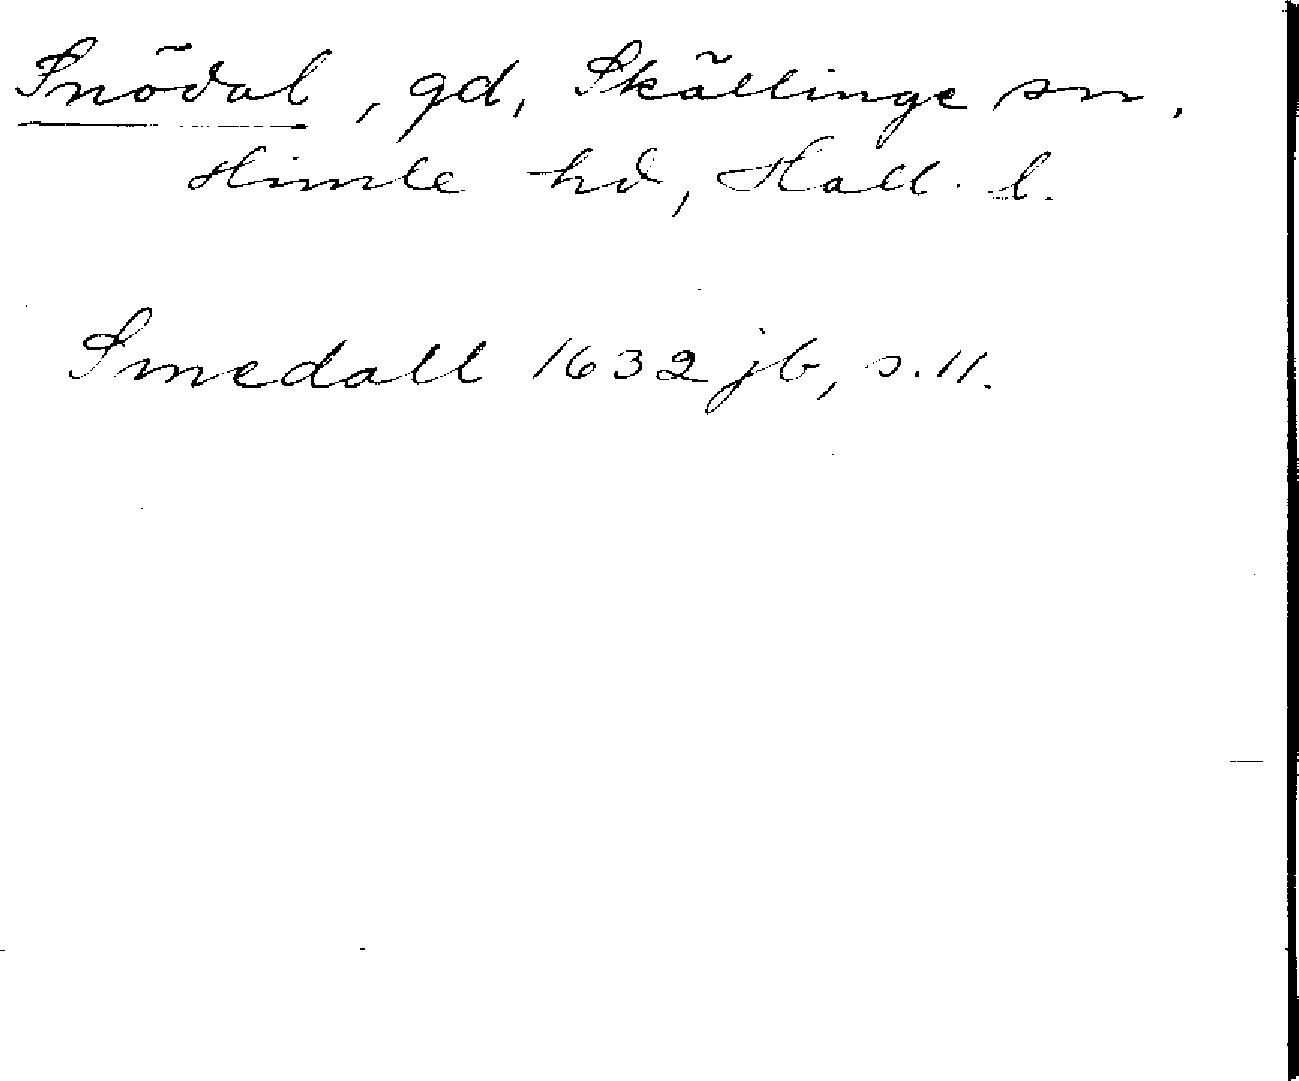 Snödal, gd, Skällinge sn,
Himle hd, Hall. l.
Smedall 1632 jb, s. 11.